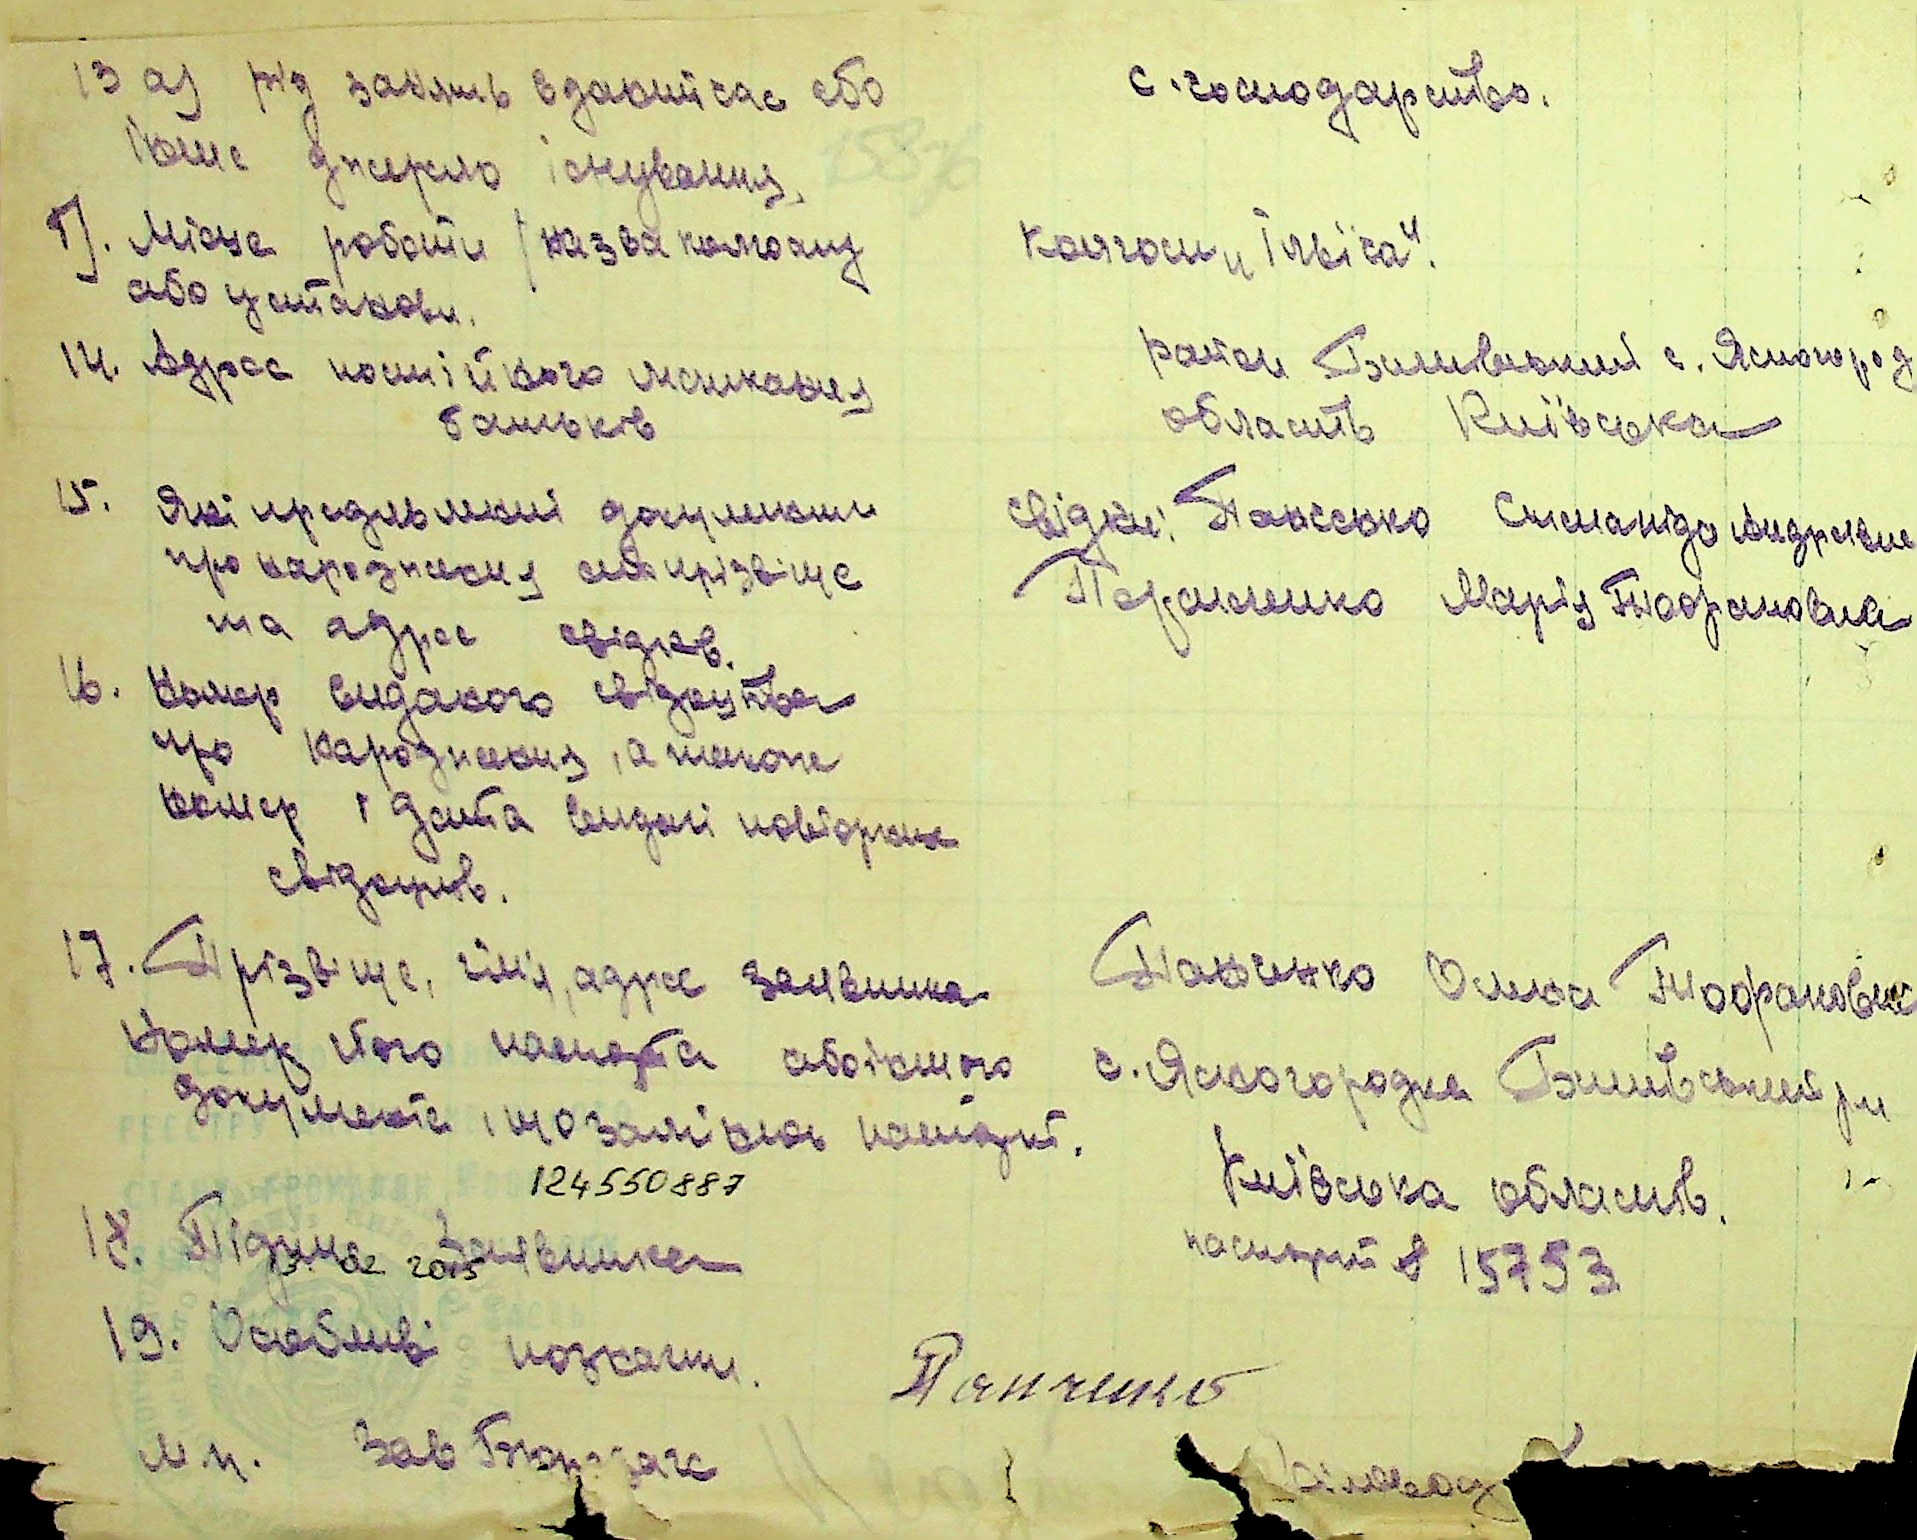 13 а) рід занять вданий час або
інше джерело існування,
с. господарство.
б). Місце роботи /назва колгоспу
або установи.
колгосп „Ілвіча".
14. Адрес постійного мешкання
батьків
район Бишівський с. Ясногород
область Київська
15. Які предявлені документи
про народження або прізвіще
та адрес свідків.
свідки: Панченко Степанида Андріївна
Марія Теофановна
16. Номер виданого свідоцтва
про народження, а також
номер і дата видачі повторних
свідоцтв.
17. Прізвіще, імя, адрес заявника
Номер його паспорта або іншого
документа, що замінює паспорт.
Панченко Олена Теофановна
с. Ясногородка Бишівський рн
Київська область.
паспорт 15753
124550887
18. Підпис Заявника
13 02 2015
19. Особливі позначки.
Панченко
М.п. Зав Бюро загс
Діловод